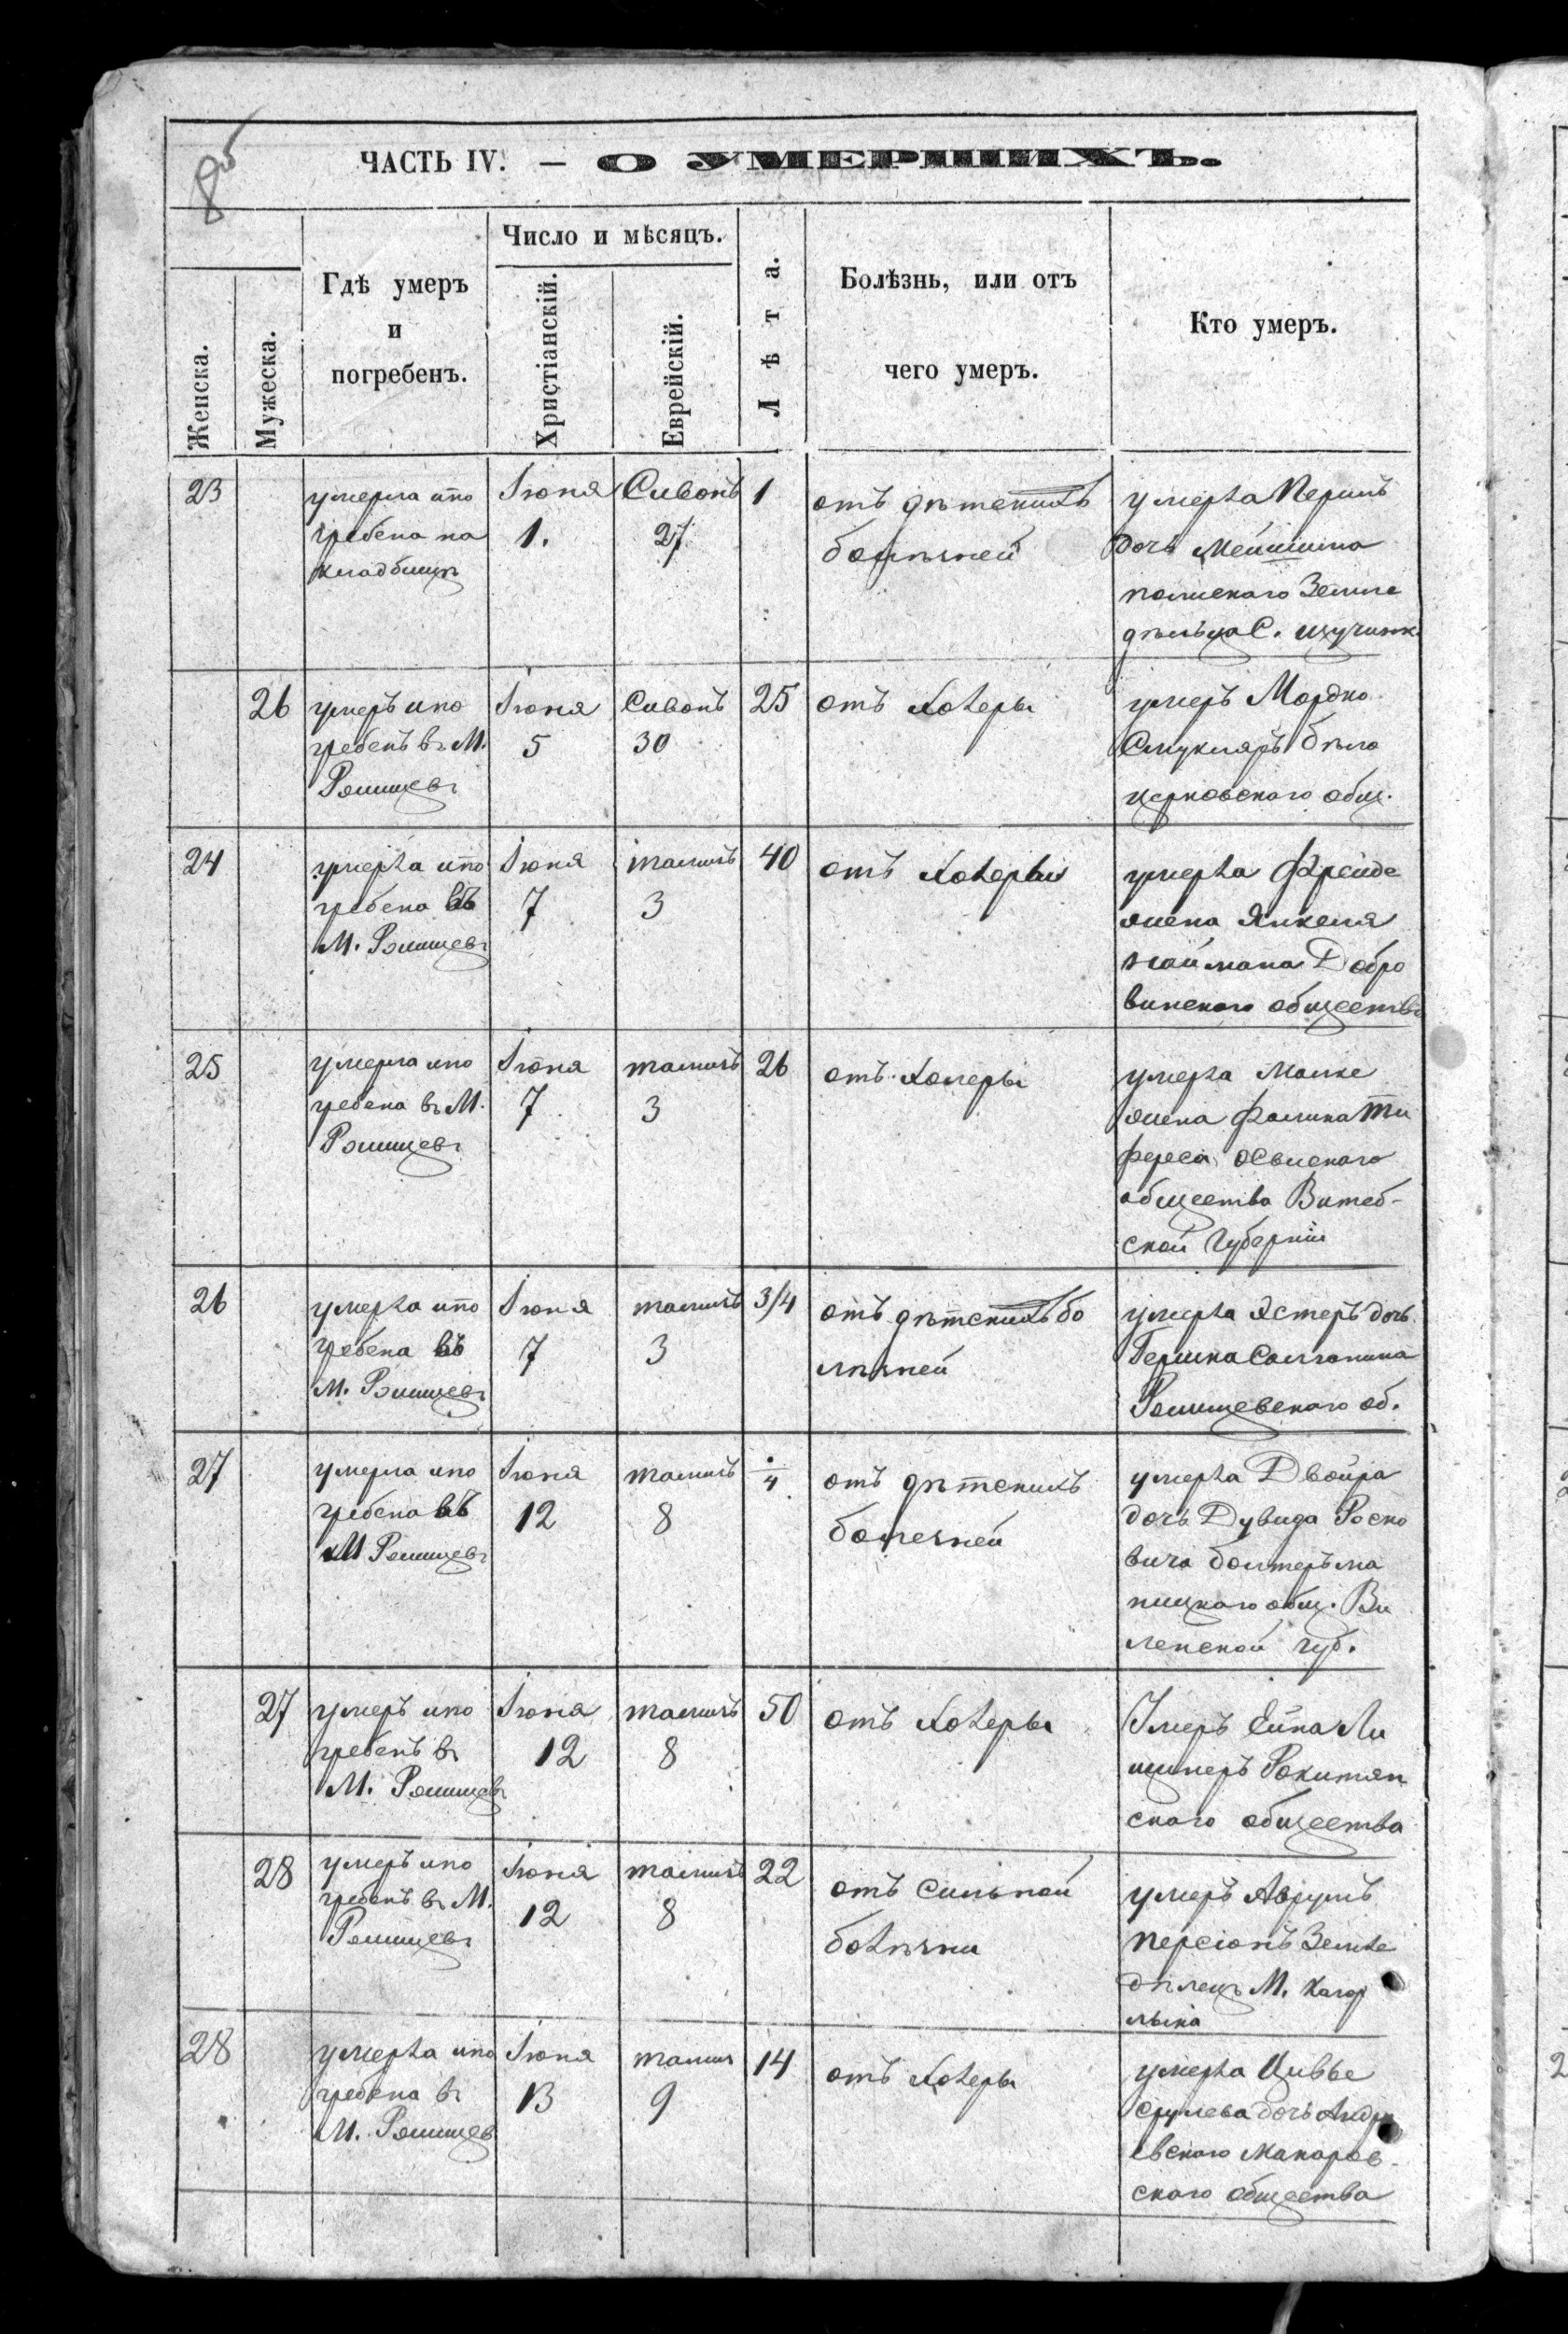 ЧАСТЬ IV. — О УМЕРШИХЪ.
Женска.
Мужеска.
Гдѣ умеръ
и
погребенъ.
Число и мѣсяцъ.
Христіанскій.
Еврейскій.
Лѣта.
Болѣзнь, или отъ
чего умеръ.
Кто умеръ.
23
умерла и по
гребена на
кладбищѣ
Іюня
1.
Сивонъ
27
1
отъ дѣтскихъ
болѣзней
умерла Перишъ
дочь
польскаго Земле
дѣльца С.
26
умеръ и по
гребенъ въ М.
Рэмищевѣ
Іюня
5
Сивонъ
30
25
отъ холеры
умеръ Мордко
Смукляръ бѣло
церковскаго общ.
24
умерла и по
гребена въ
М. Рэмищевѣ
Іюня
7
тамизъ
3
40
отъ холеры
умерла Фрейде
жена Янкеля
Наймана Добро
винскаго общества
25
умерла и по
гребена въ М.
Рэмищевѣ
Іюня
7
тамузъ
3
26
отъ холеры
умерла Малке
жена
общества Витеб-
ской Губерніи
26
умерла и по
гребена въ
М. Рэмищевѣ
Іюня
7
тамузъ
3
3/4
отъ дѣтскихъ бо
лѣзней
умерла Эстеръ дочь
Гершка
Рэмищевскаго об.
27
умерла и по
гребена въ
М Рэмищевѣ
Іюня
12
тамузъ
8
4
отъ дѣтскихъ
болезней
умерла Двойра
дочь Дувида Роско
вича
общ. Ви
ленской губ.
27
умеръ и по
гребенъ въ
М. Рэмищевѣ
Іюня
12
тамузъ
8
50
отъ холеры
Умеръ
Рокитян
скаго общества
28
умеръ и по
гребенъ въ М.
Рэмищевѣ
Іюня
12
тамузъ
8
22
отъ сильной
болѣзни
умеръ Аврумъ
Персіонъ Земле
дѣлецъ М. Кагар
лыка
28
умерла и по
гребена въ
М. Рэмищев
Іюня
13
тамуз
9
14
отъ холеры
умерла Цивье
Срулева дочь Андр
евскаго Макаров-
скаго общества